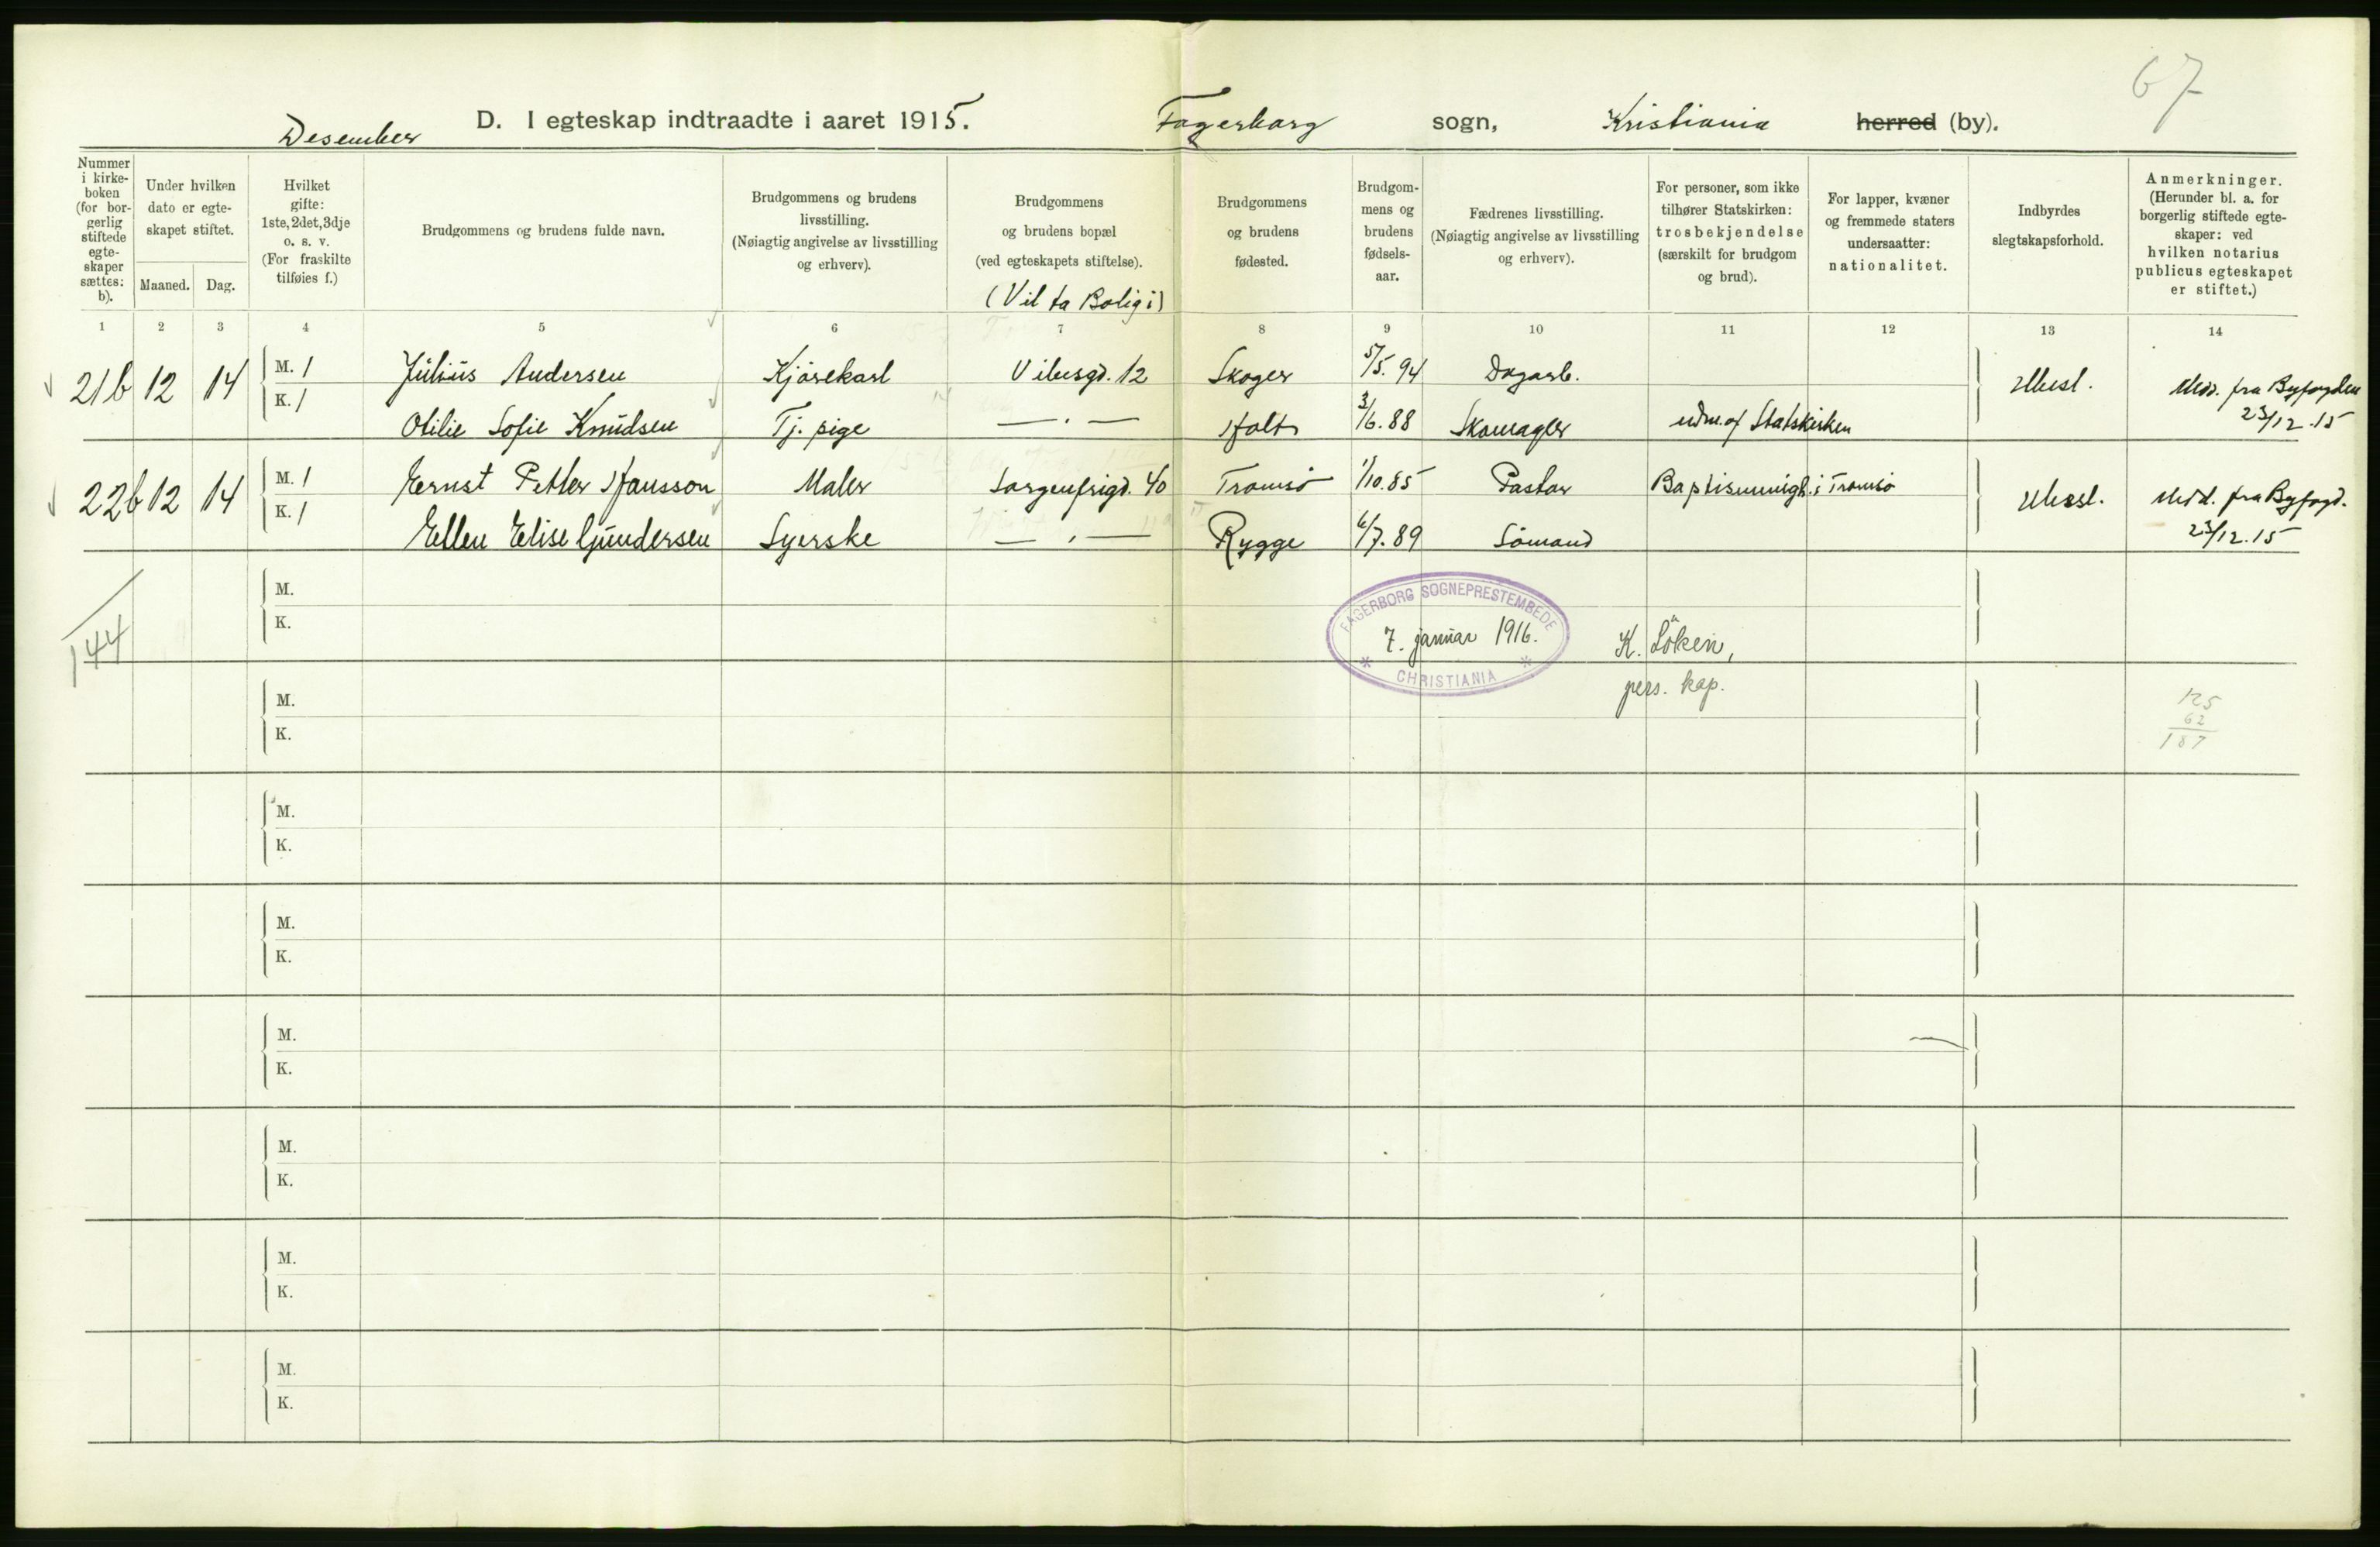 67
Desember D. I egteskap indtraadte i aaret 1915. Fagerborg sogn, Kristiania herred (by).
Nummer i kirke- boken (for bor- gerlig stiftede egte- skaper sættes: b).
Under hvilken dato er egte- skapet stiftet.
Maaned. Dag.
Hvilket gifte: 1ste, 2det, 3dje o. s. v. (For fraskilte tilføies f.)
Brudgommens og brudens fulde navn.
Brudgommens og brudens livsstilling. (Nøiagtig angivelse av livsstilling og erhverv).
Brudgommens og brudens bopæl (ved egteskapets stiftelse).
(Vil ta Bolig i)
Brudgommens og brudens fødested.
Brudgom- mens og brudens fødsels- aar.
Fædrenes livsstilling. (Nøiagtig angivelse av livsstilling og erhverv).
For personer, som ikke tilhører Statskirken: trosbekjendelse (særskilt for brudgom og brud).
For lapper, kvæner og fremmede staters undersaatter: nationalitet.
Indbyrdes slegtskapsforhold.
Anmerkninger. (Herunder bl. a. for borgerlig stiftede egte- skaper: ved hvilken notarius publicus egteskapet er stiftet.)
1 2 3 4 5 6 7 8 9 10 11 12 13 14
21b 12 14 M. 1 Julius Andersen Kjørekarl Vibesgd. 12 Skoger 5/5. 94 Dagarb. Ubesl. Medd. fra Byfogden
K. 1 Otilie Sofie Knudsen Tj. pige — . — Holt 3/6. 88 Skomager udm. af Statskirken 23/12. 15
22b 12 14 M. 1 Ernst Petter Hansson Maler Sorgenfrigd. 40 Tromsø 1/10. 85 Pastor Baptistmenigh. i Tromsø Ubesl. Medd. fra Byfogd.
K. 1 Ellen Elise Gundersen Syerske — . — Rygge 6/7. 89 Sømand 23/12. 15
M.
K.
144
FAGERBORG SOGNEPRESTEMBEDE
7. januar 1916.
* CHRISTIANIA *
K. Løken,
pers. kap.
M.
K.
125
62
187
M.
K.
M.
K.
M.
K.
M.
K.
M.
K.
M.
K.